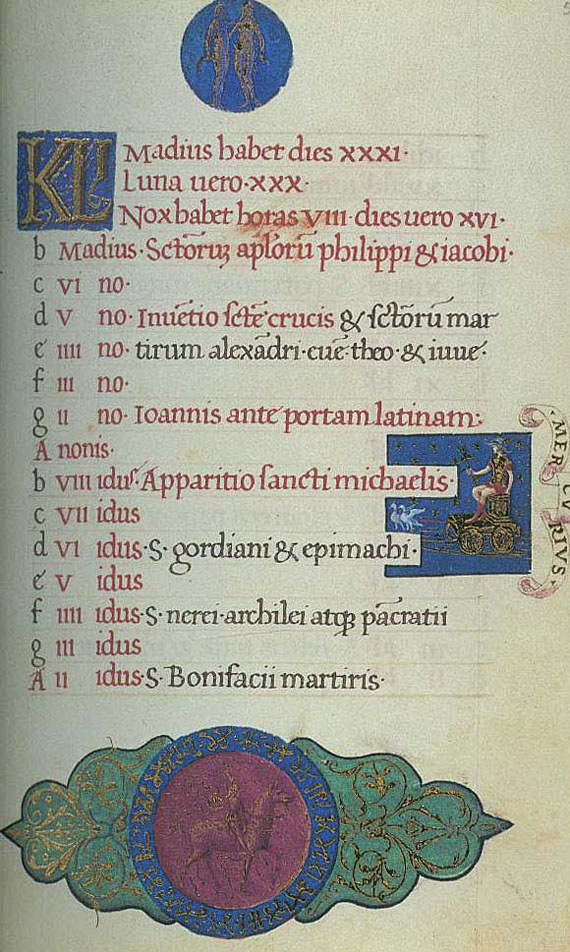 5
KL Madius habet dies xxxi·
Luna uero·xxx·
Nox habet horas viii· dies uero xvi·
b Madius· Sctōꝝ apl̄orū philippi & iacobi·
c vi no·
d v no· Inuētio sctē crucis & sctōrū mar
e iiii no· tirum alexādri· euē· theo· & iuuē·
f iii no·
g ii no· Ioannis ante portam latinam:
A nonis·
b viii idus· Apparitio sancti michaelis·
c vii idus
d vi idus· S· gordiani & epimachi·
e v idus
f iiii idus· S· nerei· archilei atqꝫ pācratii
g iii idus
A ii idus· S· Bonifacii martiris·
MERCVRIVS·